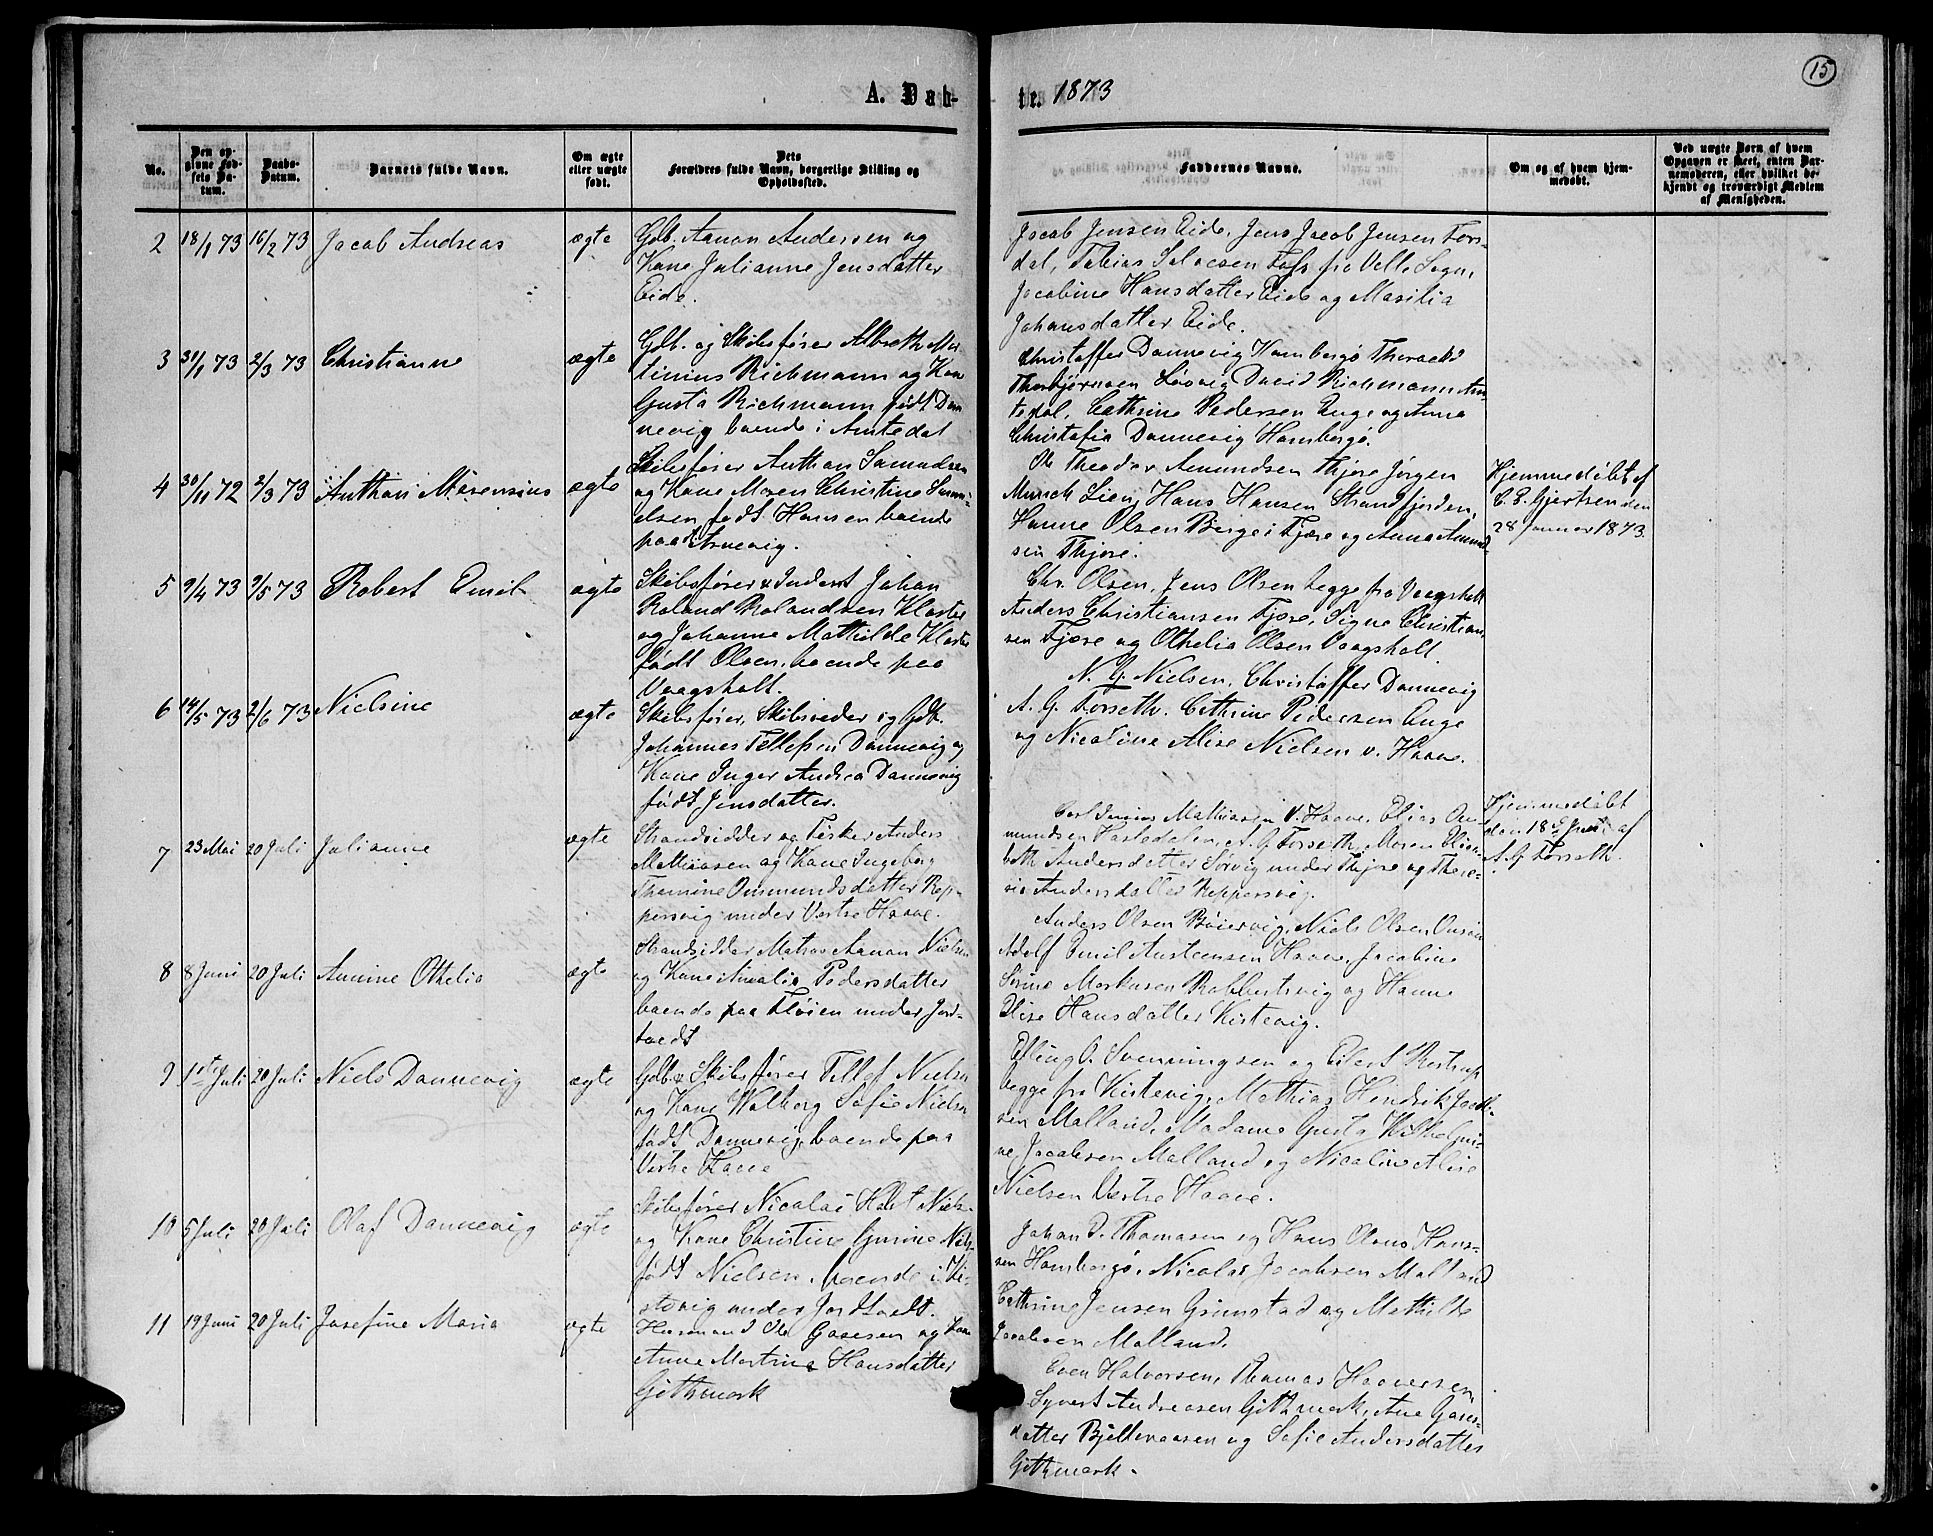 15
A. Døb-
te. 1873
No.
Den opgivne Fødsels Datum.
Daabs-Datum.
Barnets fulde Navn.
Om ægte eller uægte født.
Dets Forældres fulde Navn, borgerlige Stilling og Opholdssted.
Faddernes Navne.
Om og af hvem hjemmedøbt.
Ved uægte Børn af hvem Opgaven er skeet, enten Barnemoderen, eller hvilket bekjendt og troværdigt Medlem af Menigheden.
2 18/1 73 16/2 73 Jacob Andreas ægte
Gdb. Aanon Andersen og
Kone Julianne Jensdatter
Eide.
Jacob Jensen Eide, Jens Jacob Jensen Tors-
dal, Tobias Salvesen fra Velle Sogn,
Jacobine Hansdatter Eide og Masilia
Johansdatter Eide.
3 31/1 73 2/3 73 Christianne ægte
Gdb. og Skibsfører Albreth Mar-
tinius Richmann og Kone
Gusta Richmann født Dan-
nevig boende i Amtedal
Christoffer Dannevig Hamborgø Thorvald
Thorbjørnsen Løvvig David Richmann Am-
tedal, Cathrine Pedersen Enge og Anna
Christofia Dannevig Hamborgø.
4 30/11 72 2/3 73 Anthon Morensius ægte
Skibsfører Anthon Samuelsen
og Kone Maren Christine Samu-
elsen født Hansen boende
paa Arnevig.
Ole Theodor Amundsen Thjore Jørgen
Munch Lien, Hans Hansen Strandfjorden,
Hanne Olsen Berge i Fjære og Anna Amund
sen Thjore.
Hjemmedøbt af
C. P. Gjertsen den
28 Januar 1873.
5 9/4 73 9/5 73 Robert Emil ægte
Skibsfører & Inderst Johan
Roland Rolandsen Kloster
og Johanne Mathilde Kloster
født Olsen, boende paa
Vaagsholt.
Chr. Olsen, Jens Olsen begge fra Vaagsholt
Anders Christiansen Fjære, Signe Christian
sen Fjære og Othelia Olsen Vaagsholt.
6 14/5 73 2/6 73 Nielsine ægte
Skibsfører, Skibsreder og Gdb.
Johannes Tellefsen Dannevig og
Kone Inger Andrea Dannevig
født Jensdatter.
N. G. Nielsen, Christoffer Dannevig
A. G. Forseth. Cathrine Pedersen Enge
og Nicoline Alise Nielsen v. Haave.
7 23 Mai 20 Juli Julianne ægte
Strandsidder og Fisker Anders
Mathiasen og Kone Ingeborg
Themine Ommundsdatter Rep-
persvig under Vestre Haave.
Carl Junius Mathiasen V. Haave, Elias Om-
mundsen Hasledalen, A. G. Forseth, Maren Elisa-
beth Andersdatter Sørvig under Thjore og There-
sie Andersdatter Reppersvig.
Hjemmedøbt
den 18de Juni af
A. G Forseth.
8 8 Juni 20 Juli Annine Othelia ægte
Strandsidder Matros Aanon Nielsen
og Kone Amalia Pedersdatter
boende paa Fløien under Jord-
tvedt
Anders Olsen Bøiervig, Niels Olsen
Adolf Emil Austeensen Haave, Jacobine
Sørine Markusen Robbertsvig og Hanne
Elise Hansdatter Kistevig.
9 1ste Juli 20 Juli Niels Dannevig ægte
Gdb. & Skibsfører Tellef Nielsen
og Kone Walborg Sofie Nielsen
født Dannevig, boende paa
Vestre Haave
Elling O. Svenningsen og Eilert Rostrup
begge fra Kistevig, Mathias Hendrik Jacob-
sen Malland, Madame Gusta Wilhelmi-
ne Jacobsen Malland og Nicoline Alise
Nielsen Vestre Haave.
10 5 Juli 20 Juli Olaf Dannevig ægte
Skibsfører Nicolai Holst Niels-
og Kone Christine Gurine Niels-
født Nielsen, boende i Ki-
stevig under Jordtvedt.
Johan D. Thomasen og Hans Olaus Han-
sen Hamborgø. Nicolai Jacobsen Malland
Cathrine Jensen Grimstad og Mathilde
Jacobsen Malland.
11 19 Juni 20 Juli Josefine Maria ægte
Husmand Ole Gosesen og Kone
Anne Martine Hansdatter
Githmark
Even Halvorsen, Thomas Haaversen
Syvert Andreasen Githmark, Ane Goses-
datter Bjellevaasen og Sofie Andersdatter
Githmark.